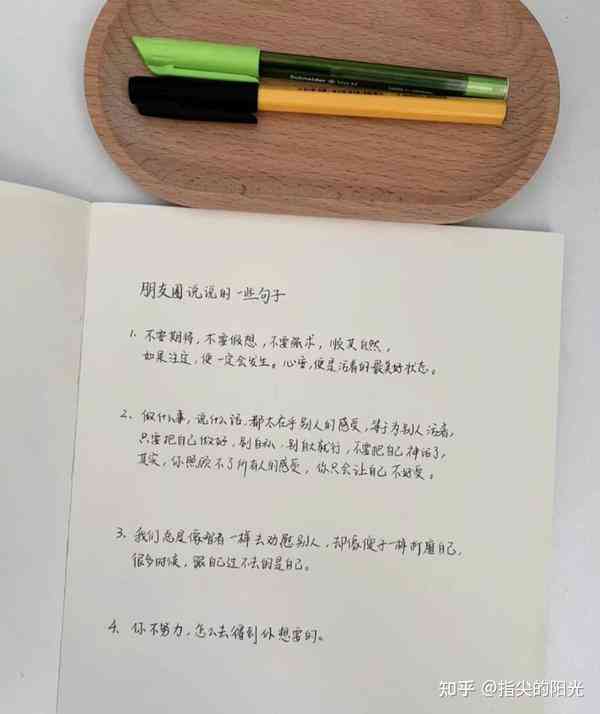 Schneider
朋友圈说说的一些句子
1. 不要期待，不要假想，不要强求，顺其自然，
如果注定，便一定会发生。心安，便是活着的最美好状态。
2. 做什么事，说什么话，都太在乎别人的感受，等于为别人活着，
只要把自己做好，别自私，别自大就行，不要把自己神话了，
其实，你照顾不了所有人的感受，你只会让自己不好受。
3. 我们总是像智者一样去劝慰别人，却像傻子一样折磨自己，
很多时候，跟自己过不去的是自己。
4. 你不努力，怎么去得到你想要的。
知乎 @指尖的阳光